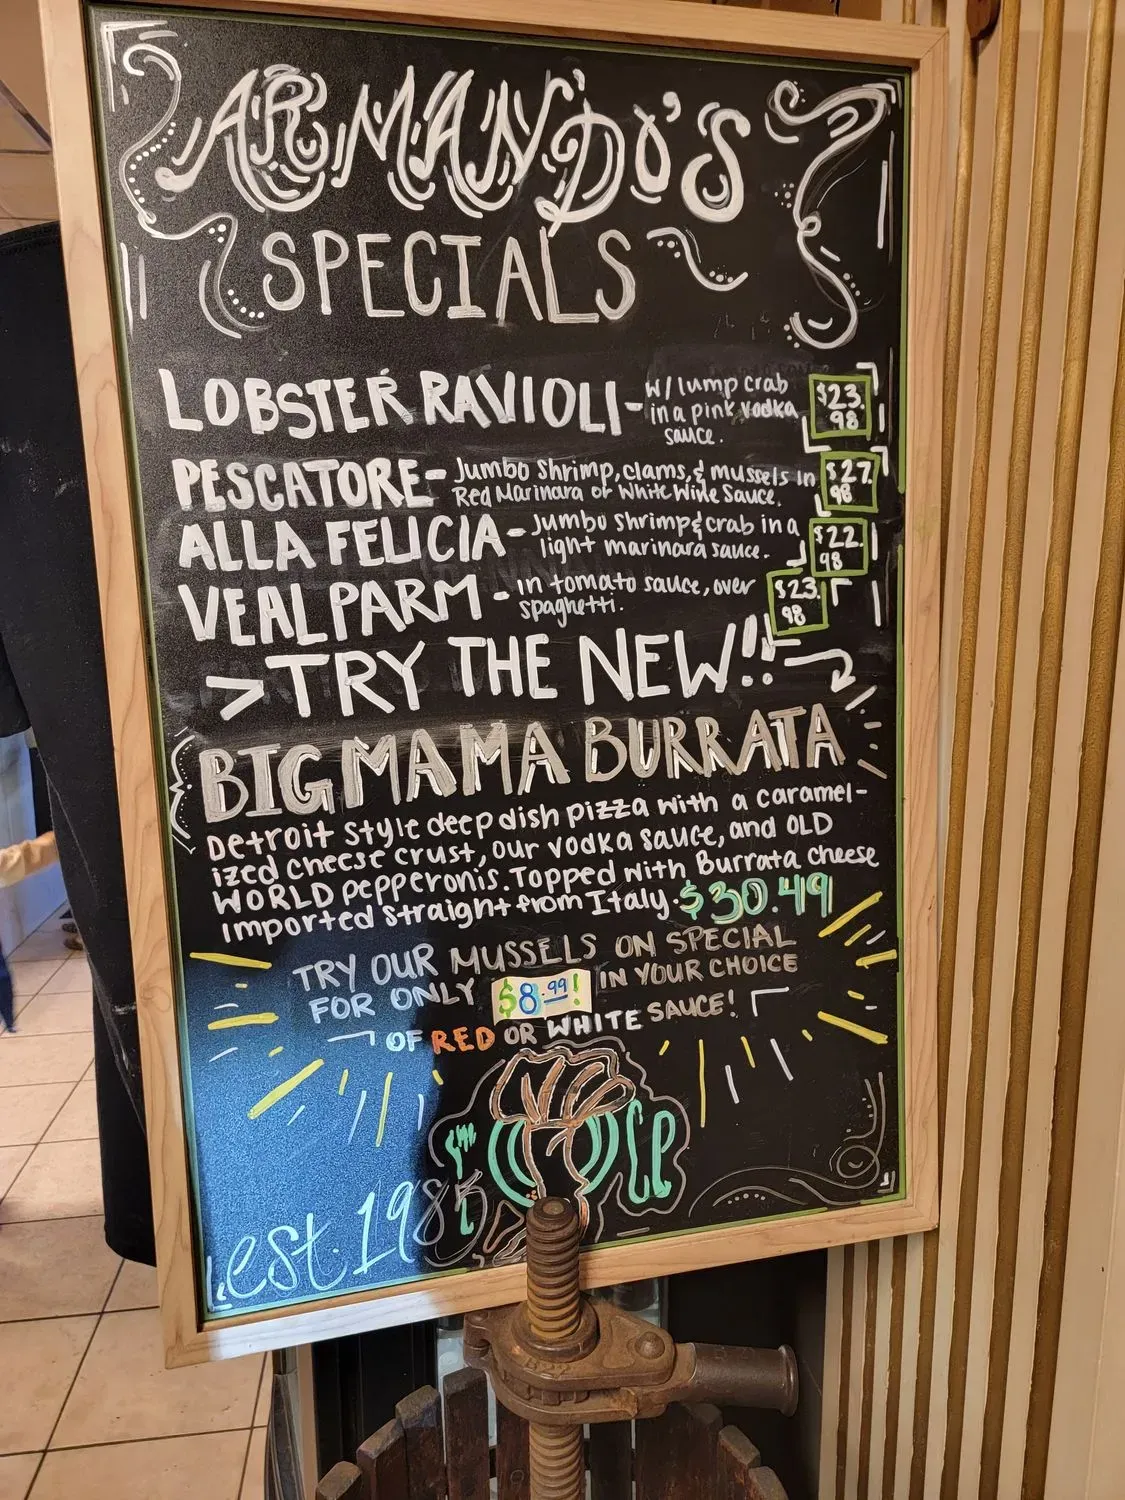 ARMANDO'S
SPECIALS
LOBSTER RAVIOLI - w/ lump crab
in a pink vodka
sauce.
$23.
98
PESCATORE - Jumbo Shrimp, clams, & mussels in
Red Marinara or White Wine Sauce.
$27.
98
ALLA FELICIA - Jumbo Shrimp & crab in a
light marinara sauce.
$22.
98
VEAL PARM - in tomato sauce, over
spaghetti.
$23.
98
>TRY THE NEW!!
BIG MAMA BURRATA
Detroit style deep dish pizza with a caramel-
ized cheese crust, our vodka sauce, and OLD
WORLD pepperonis. Topped with Burrata cheese
imported straight from Italy. $30.49
TRY OUR MUSSELS ON SPECIAL
FOR ONLY $8.99! IN YOUR CHOICE
OF RED OR WHITE SAUCE!
est. 1985